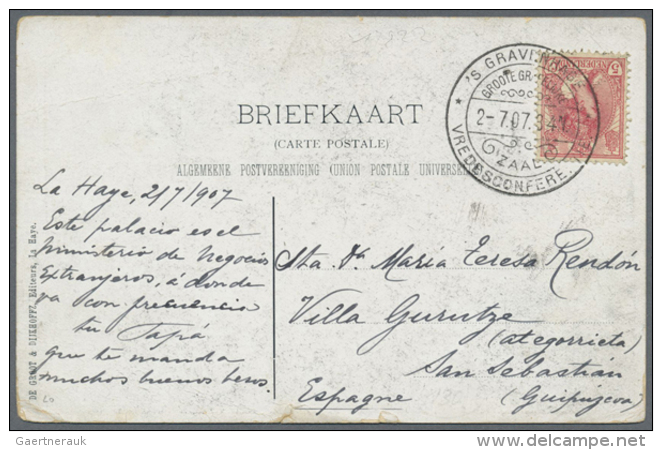 'S GRAVENHAGE
GROOTE GR
2- 7.07. 3 4
ZAAL
VREDESCONFERE
NEDERL
5
BRIEFKAART
(CARTE POSTALE)
ALGEMEENE POSTVEREENIGING (UNION POSTALE UNIVERSE
La Haye, 2/7/907
Este palacio es el
ministerio de negocios
Extranjeros, á donde
va con frecuencia
tu Papá
que te manda
muchos buenos besos.
Sta. Da. Maria Teresa Rendón
Villa Gurutze
(Ategorrieta)
San Sebastián
Espagne (Guipuzcoa)
DE GROOT & DIJKHOFFZ, Editeurs, La Haye.
Gaertnerauk
delcampe.net